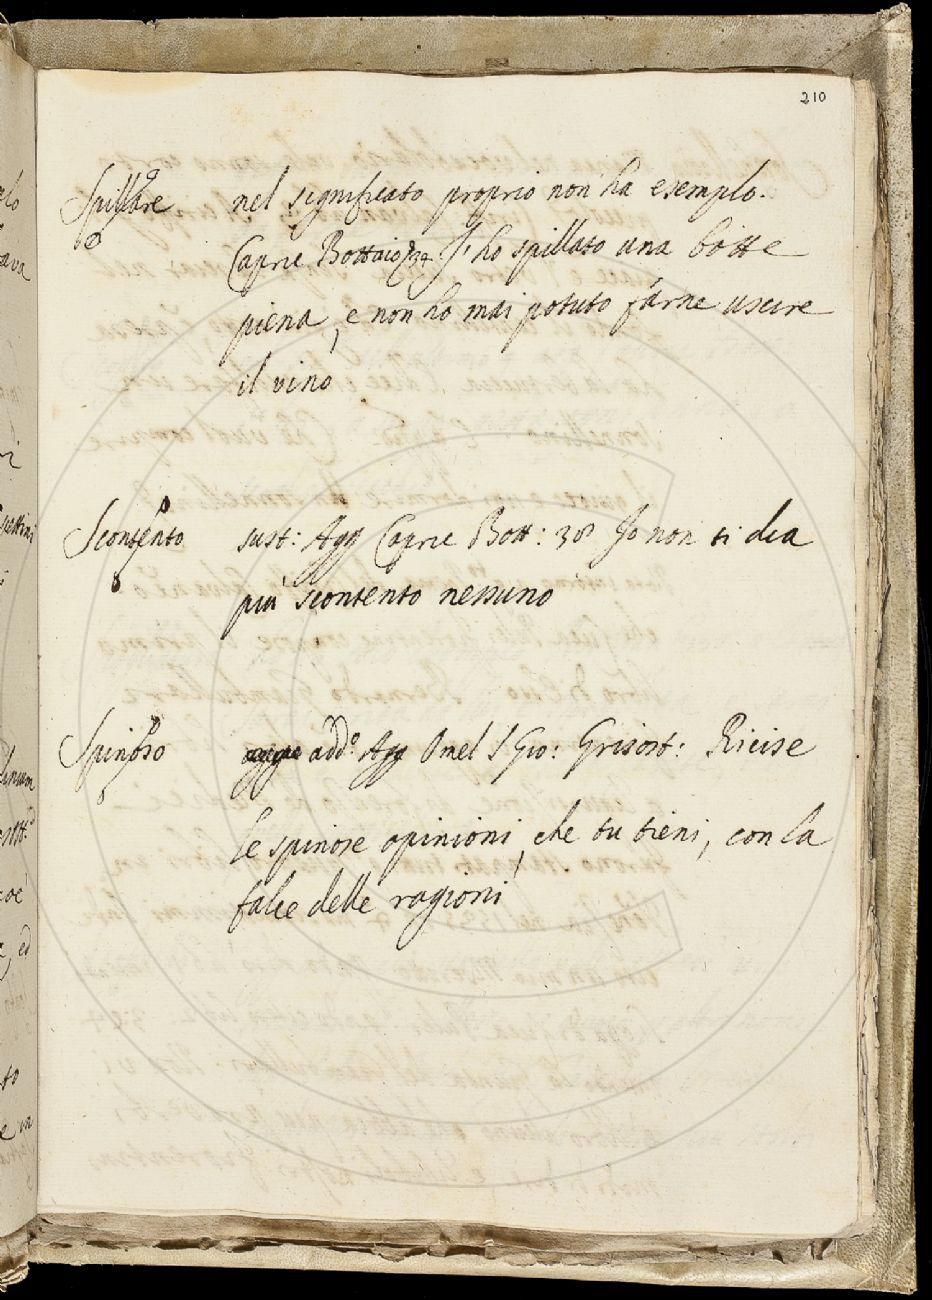 210
Spillare nel significato proprio non ha esempio.
Capric Bottaio 24 J' ho spillato una botte
piena, e non ho mai potuto farne uscire
il vino
Scontento sust: Agg Capric Bott: 38 Jo non ti dea
più scontento nessuno
Spinoso add.º Agg Omel S Gio: Grisost: Ricise
le spinose opinioni, che tu tieni, con la
falce delle ragioni